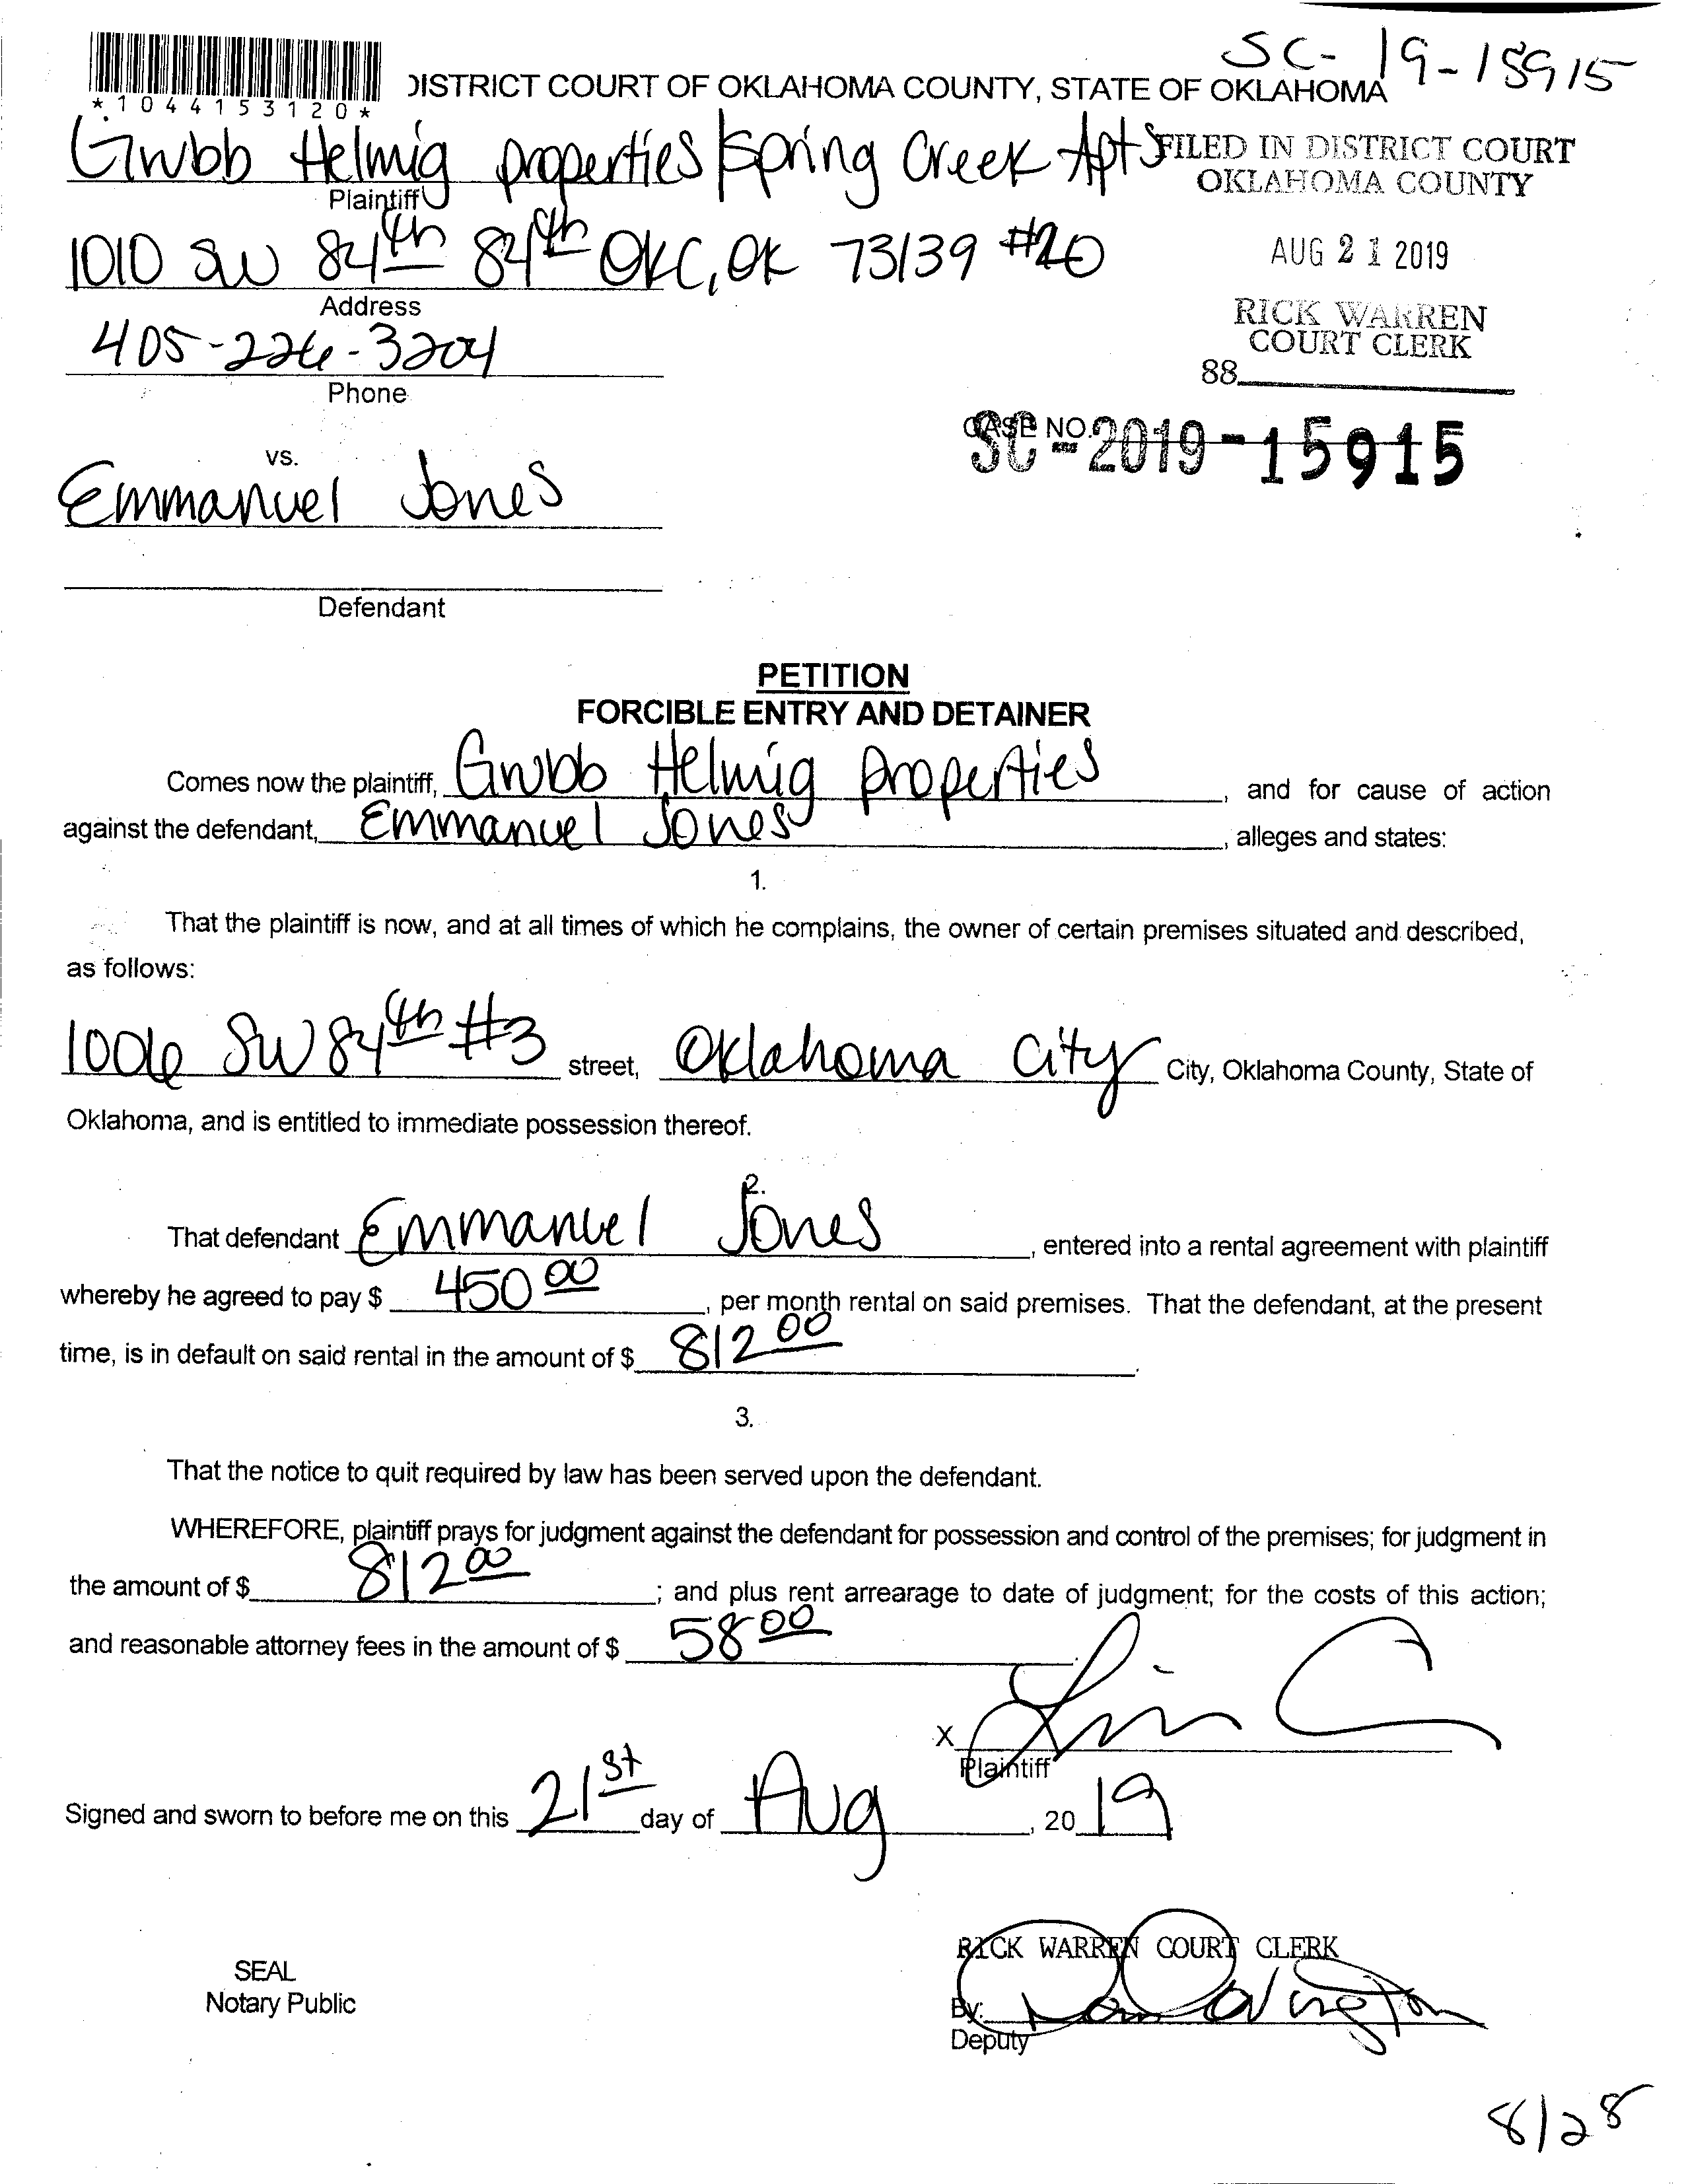 SC-19-15915
*1044153120*
DISTRICT COURT OF OKLAHOMA COUNTY, STATE OF OKLAHOMA
Grubb Helmig properties/Spring Creek Apts
Plaintiff
FILED IN DISTRICT COURT
OKLAHOMA COUNTY
1010 SW 84th 84th OKC, OK 73139 #20
Address
AUG 21 2019
405-226-3204
Phone
RICK WARREN
COURT CLERK
88
CASE NO.
SC-2019-15915
vs.
Emmanuel Jones
Defendant
PETITION
FORCIBLE ENTRY AND DETAINER
Comes now the plaintiff, Grubb Helmig properties, and for cause of action
against the defendant, Emmanuel Jones, alleges and states:
1.
That the plaintiff is now, and at all times of which he complains, the owner of certain premises situated and described,
as follows:
1006 SW 84th #3 street, Oklahoma City City, Oklahoma County, State of
Oklahoma, and is entitled to immediate possession thereof.
2.
That defendant Emmanuel Jones, entered into a rental agreement with plaintiff
whereby he agreed to pay $ 450 00, per month rental on said premises. That the defendant, at the present
time, is in default on said rental in the amount of $ 812 00.
3.
That the notice to quit required by law has been served upon the defendant.
WHEREFORE, plaintiff prays for judgment against the defendant for possession and control of the premises; for judgment in
the amount of $ 812 00; and plus rent arrearage to date of judgment; for the costs of this action;
and reasonable attorney fees in the amount of $ 58 00.
X
Plaintiff
Signed and sworn to before me on this 21st day of Aug, 2019
SEAL
Notary Public
RICK WARREN COURT CLERK
By:
Deputy
8/28